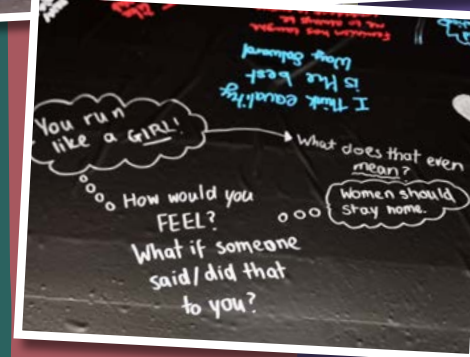 Feminism has taught
me to always be
I think equality
is the best
Way forward
You run
like a GIRL!
What does that even
mean?
Women should
stay home.
How would you
FEEL?
What if someone
said/did that
to you?